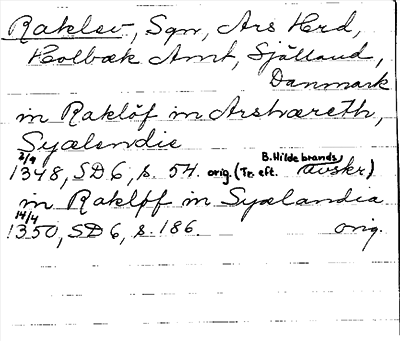 Raklev, Sgn, Ars Hrd,
Holbæk Amt, Sjælland,
Danmark
in Raklöf in Arshæreth,
Syælendie
2/9
1348, SD 6, s. 54. orig. (Tr. eft. B. Hildebrands avskr)
in Rakløff in Syælandia
14/4
1350, SD 6, s. 186. orig.